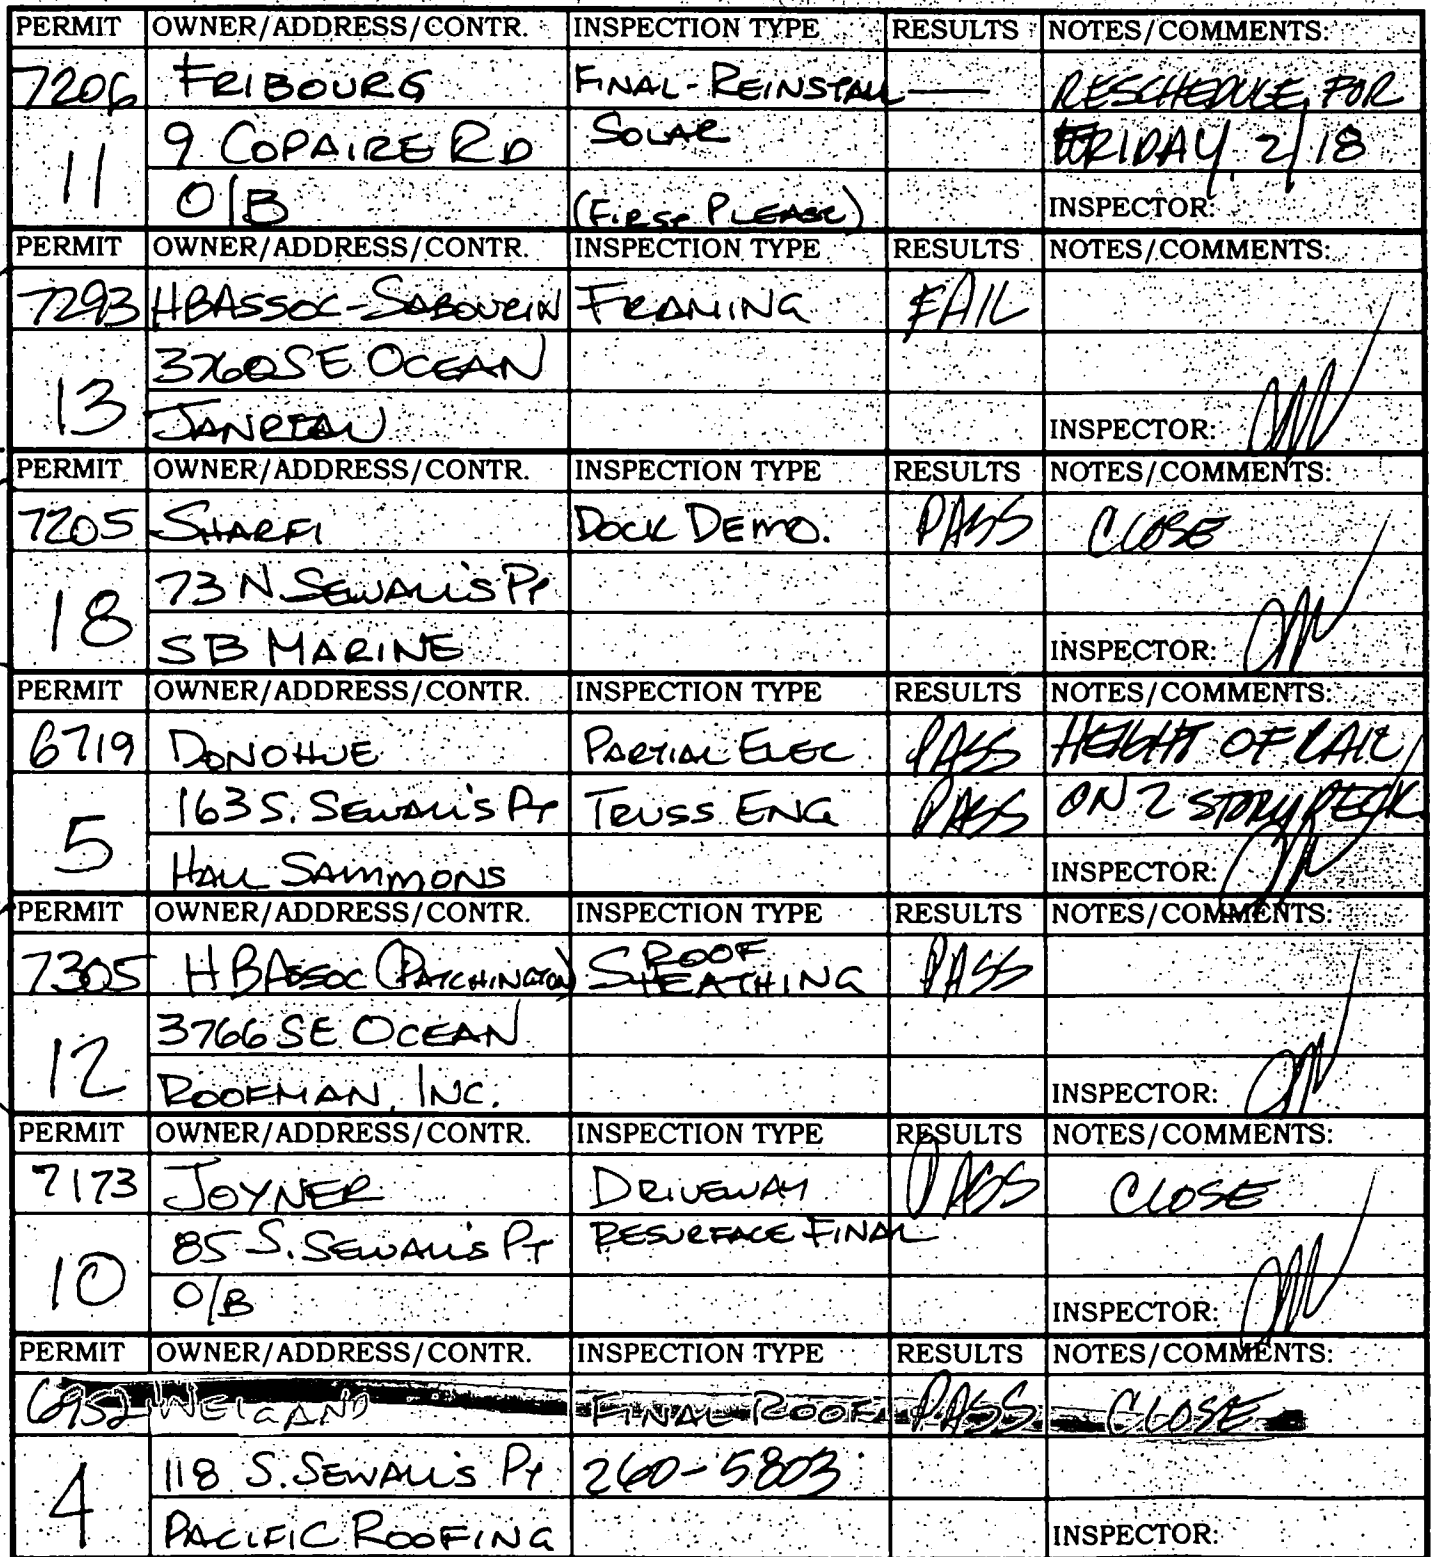 PERMIT OWNER/ADDRESS/CONTR. INSPECTION TYPE RESULTS NOTES/COMMENTS:
7206 FRIBOURG FINAL-REINSTALL — RESCHEDULE FOR
11 9 COPAIRE RD SOLAR FRIDAY 2/18
O/B (FIRST PLEASE) INSPECTOR:
PERMIT OWNER/ADDRESS/CONTR. INSPECTION TYPE RESULTS NOTES/COMMENTS:
7293 HBASSOC-SABOURIN FRAMING FAIL
13 3760 SE OCEAN
INSPECTOR:
PERMIT OWNER/ADDRESS/CONTR. INSPECTION TYPE RESULTS NOTES/COMMENTS:
7205 SHARFI DOCK DEMO. PASS CLOSE
18 73 N. SEWALL'S PT
SB MARINE INSPECTOR:
PERMIT OWNER/ADDRESS/CONTR. INSPECTION TYPE RESULTS NOTES/COMMENTS:
6719 DONOHUE PARTIAL ELEC PASS HEIGHT OF RAIL
5 163 S. SEWALL'S PT TRUSS ENG PASS ON 2 STORY DECK
HALL SAMMONS INSPECTOR:
PERMIT OWNER/ADDRESS/CONTR. INSPECTION TYPE RESULTS NOTES/COMMENTS:
7305 HBASSOC (PATCHINGTON) ROOF SHEATHING PASS
12 3766 SE OCEAN
ROOFMAN, INC. INSPECTOR:
PERMIT OWNER/ADDRESS/CONTR. INSPECTION TYPE RESULTS NOTES/COMMENTS:
7173 JOYNER DRIVEWAY PASS CLOSE
10 85 S. SEWALL'S PT RESURFACE FINAL
O/B INSPECTOR:
PERMIT OWNER/ADDRESS/CONTR. INSPECTION TYPE RESULTS NOTES/COMMENTS:
6952 WEIGAND FINAL ROOF PASS CLOSE
4 118 S. SEWALL'S PT 260-5803
PACIFIC ROOFING INSPECTOR: